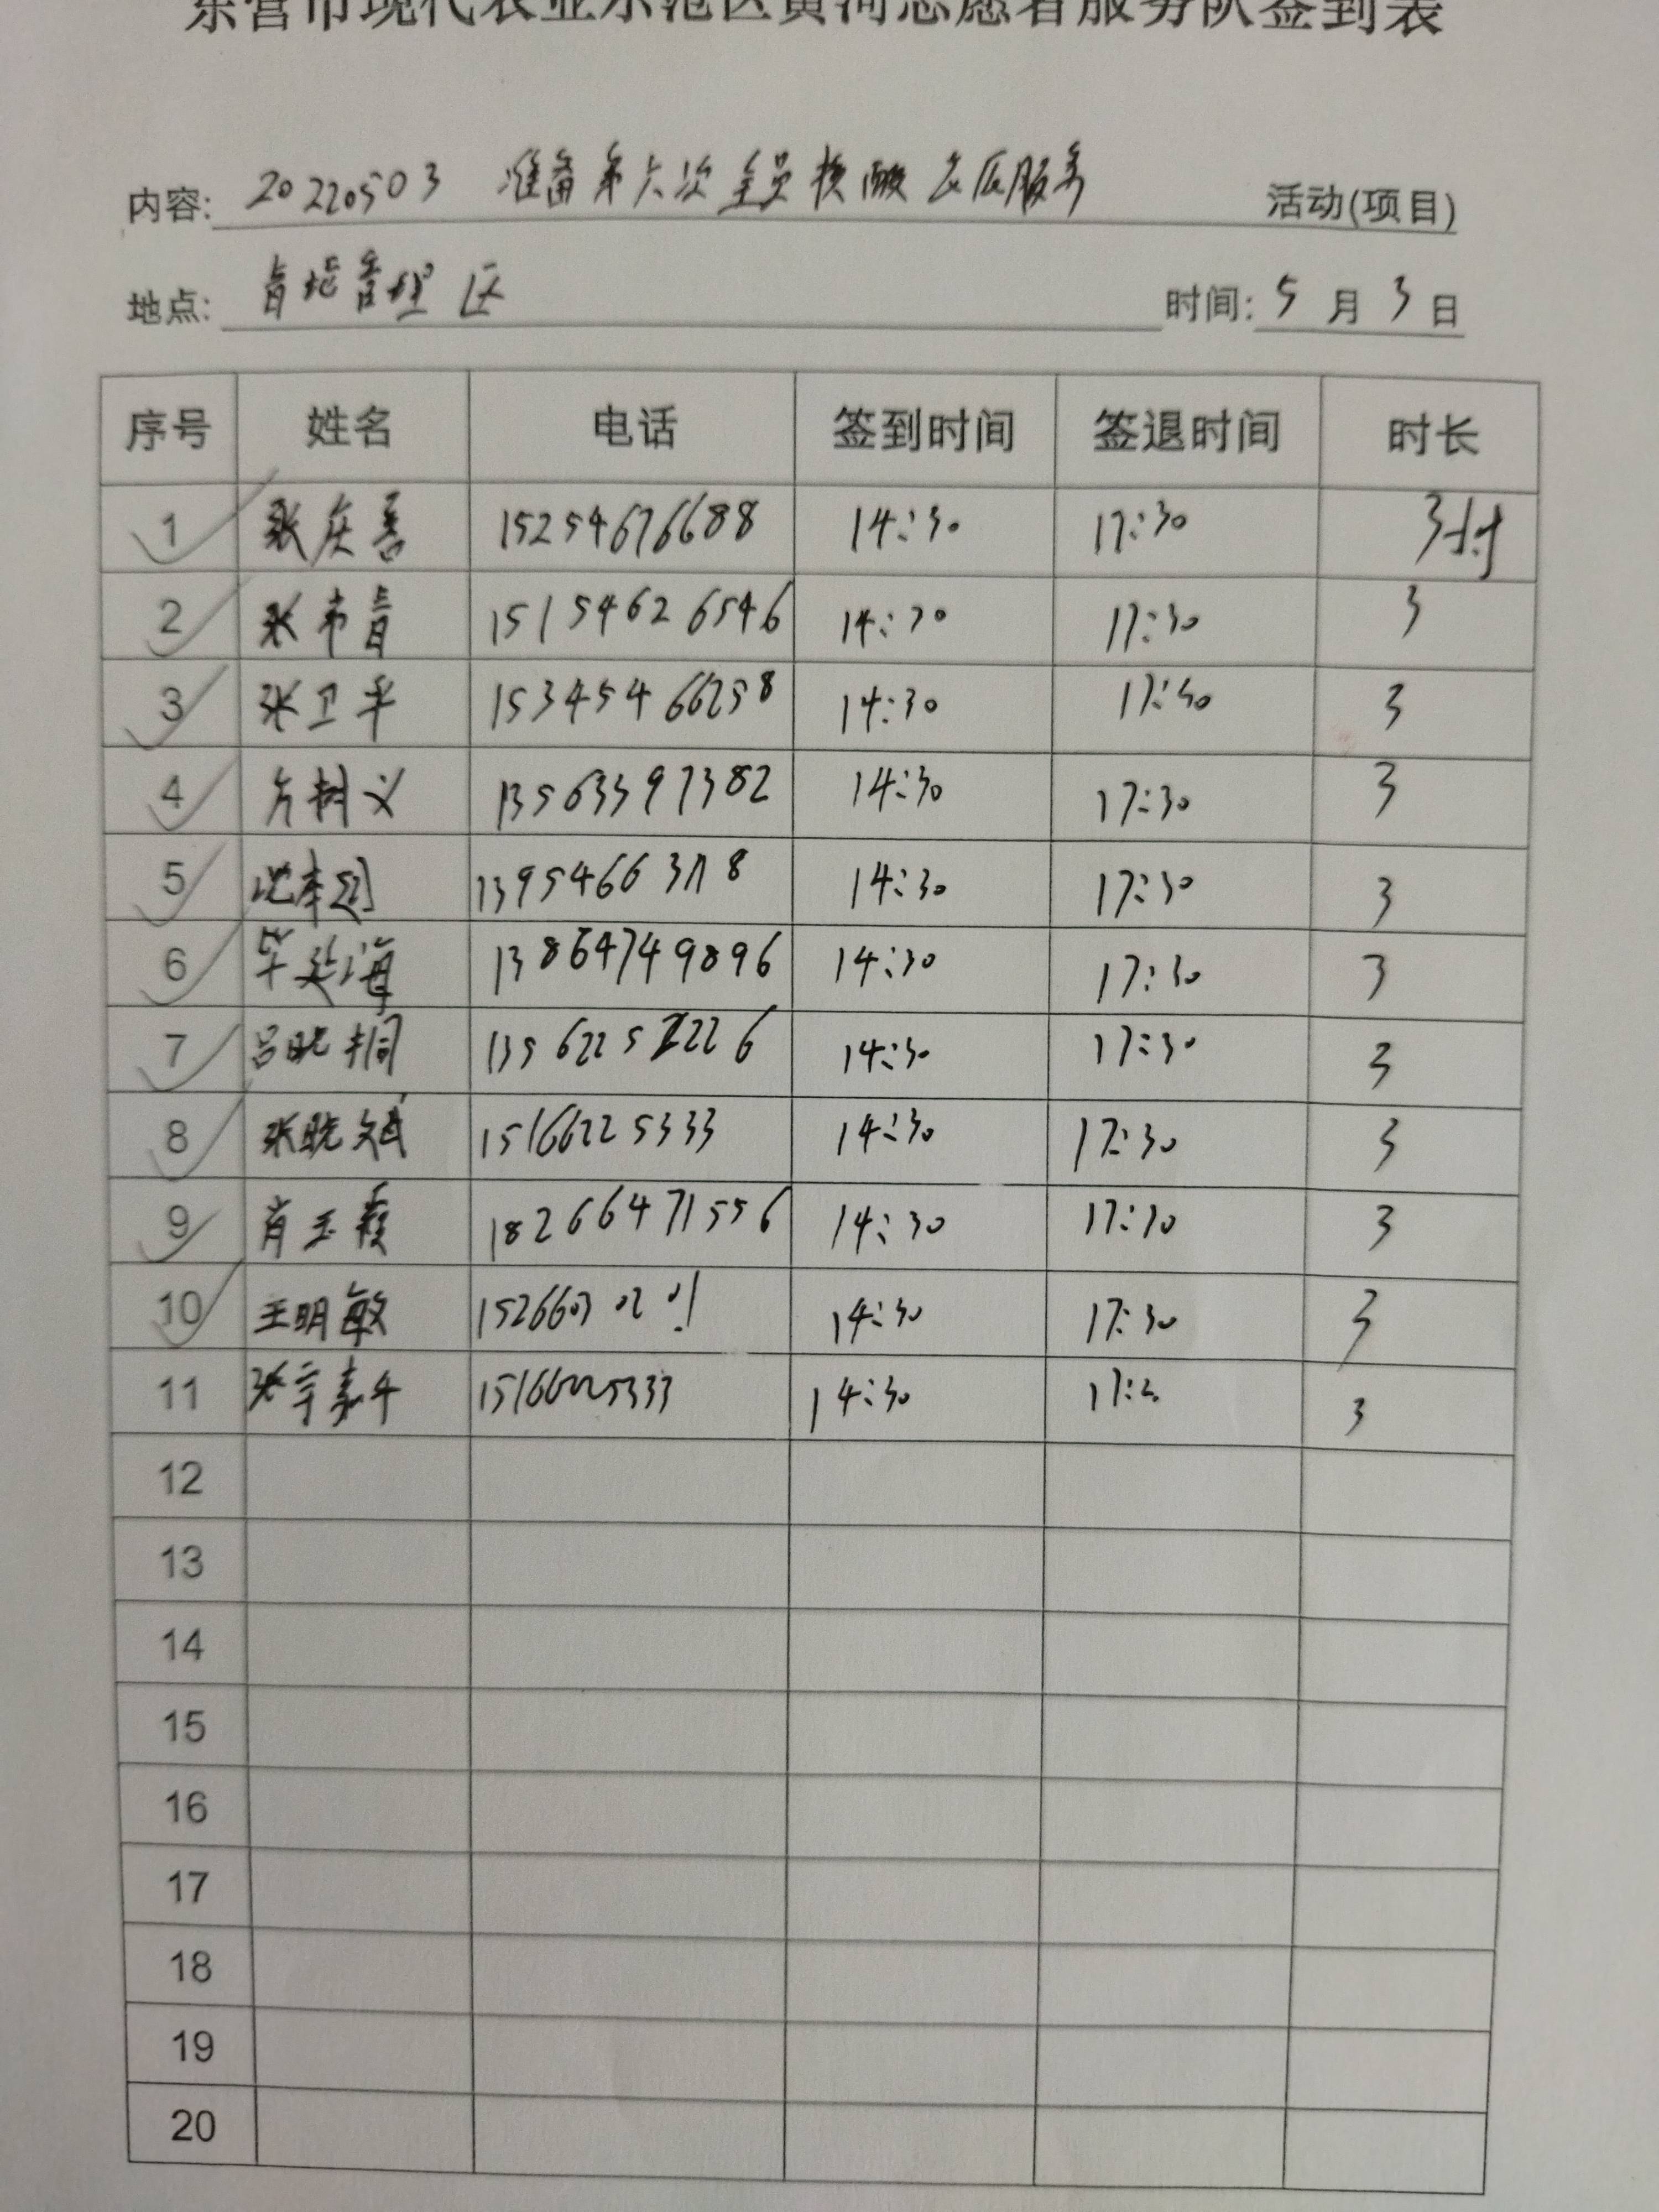 东营市现代农业示范区黄河志愿者服务队签到表
内容: 20220503 准备第六次全员核酸 服务 活动(项目)
地点: 管理区 时间: 5 月 3 日
序号 姓名 电话 签到时间 签退时间 时长
1 张庆善 15254676688 14:30 17:30 3时
2 张 青 15154626546 14:30 17:30 3
3 张卫平 15345466258 14:30 17:30 3
4 树义 13563397382 14:30 17:30 3
5 13954663118 14:30 17:30 3
6 毕延海 13864749896 14:30 17:30 3
7 吕晓桐 14:30 17:30 3
8 张晓斌 15166225333 14:30 17:30 3
9 肖玉霞 18266471556 14:30 17:30 3
10 王明敏 14:30 17:30 3
11 张 15166225333 14:30 3
12
13
14
15
16
17
18
19
20